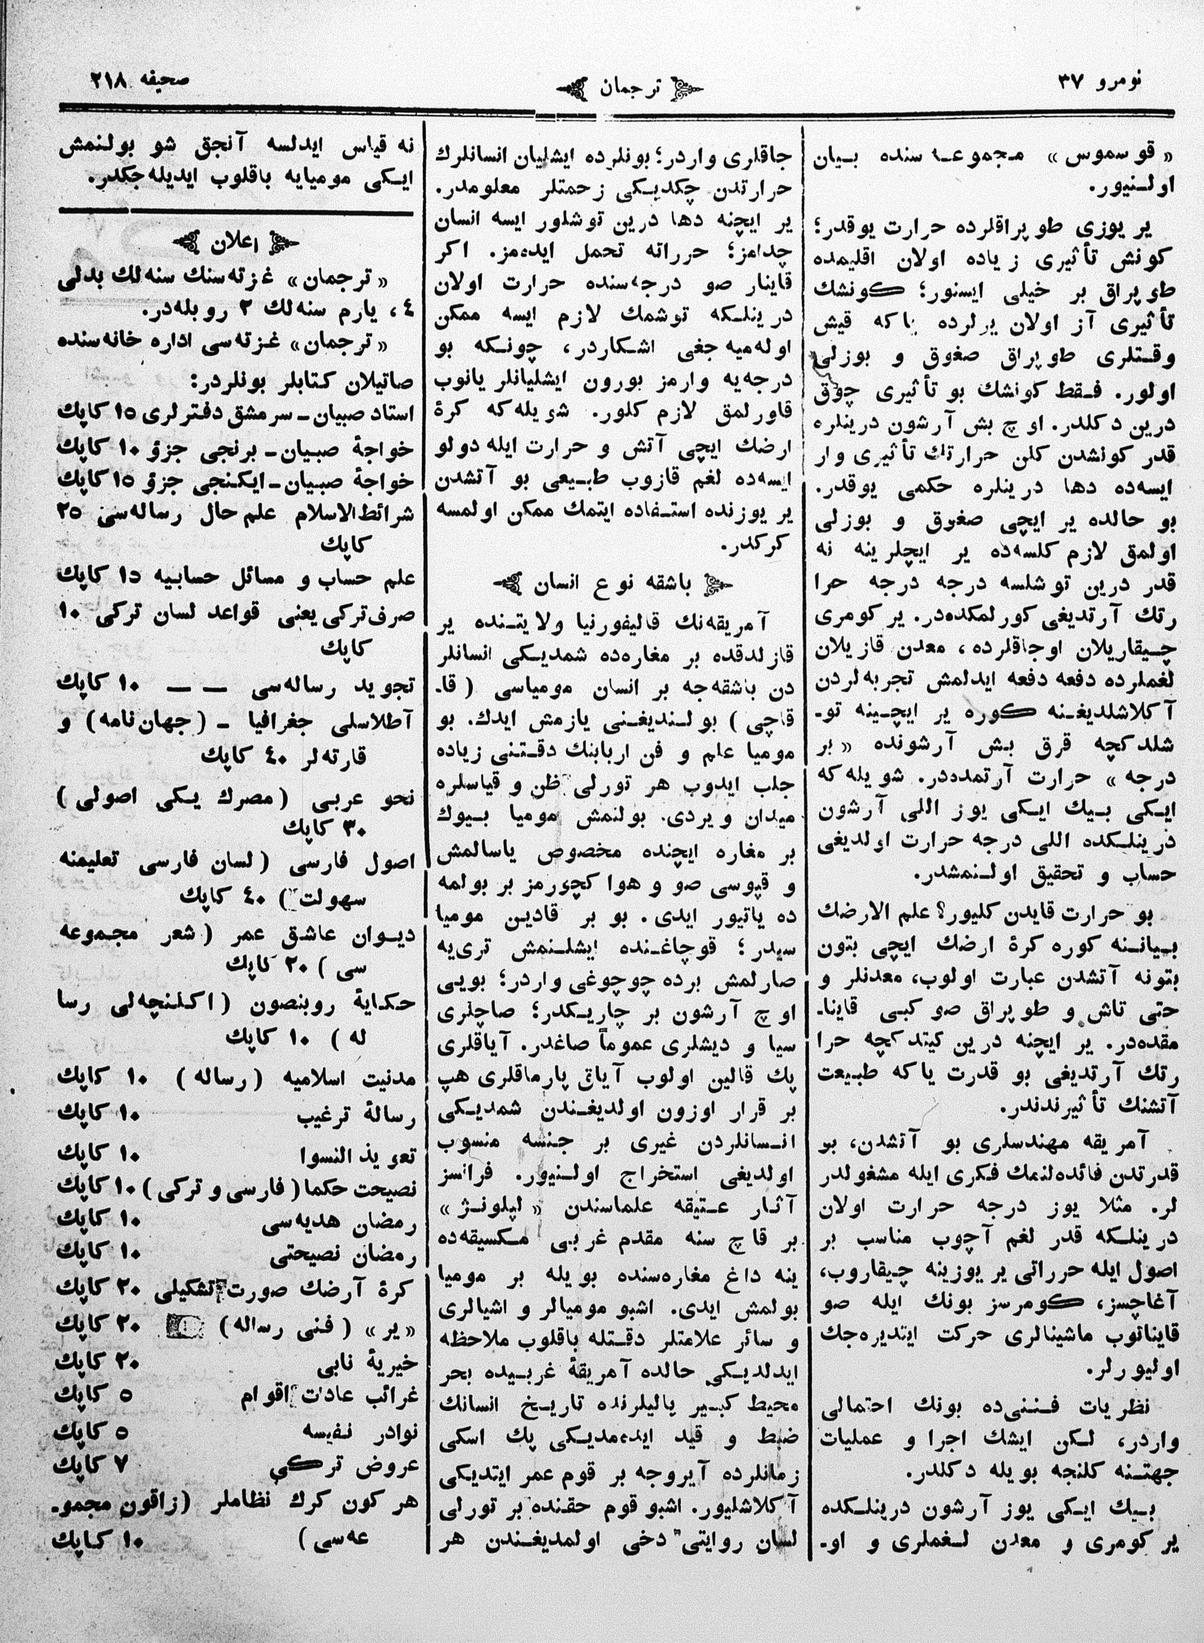 نومرو ۳۷
ترجمان
صحیفه ۲۱۸
« قوسموس » مجموعه سنده بیان
اولنیور.
یر یوزی طوپراقلرده حرارت یوقدر؛
کونش تأثیری زیاده اولان اقلیمده
طوپراق بر خیلی ایسنور؛ کونشك
تأثیری آز اولان یرلرده یاکه قیش
وقتلری طوپراق صغوق و بوزلی
اولور. فقط کونشك بو تأثیری چوق
درین دکلدر. اوچ بش آرشون درینلره
قدر کونشدن کلن حرارتك تأثیری وار
ایسه‌ده دها درینلره حکمی یوقدر.
بو حالده یر ایچی صغوق و بوزلی
اولمق لازم کلسه‌ده یر ایچلرینه نه
قدر درین توشلسه درجه درجه حرا
رتك آرتدیغی کورلمکده‌در. یر کومری
چیقاریلان اوجاقلرده، معدن قازیلان
لغملرده دفعه دفعه ایدلمش تجربه‌لردن
آکلاشلدیغنه کوره یر ایچینه تو-
شلدکچه قرق بش آرشونده « بر
درجه » حرارت آرتمده‌در. شویله‌که
ایکی بیك ایکی یوز اللی آرشون
درینلکده اللی درجه حرارت اولدیغی
حساب و تحقیق اولنمشدر.
بو حرارت قایدن کلیور؟ علم الارضك
بیاننه کوره کرۀ ارضك ایچی بتون
بتونه آتشدن عبارت اولوب، معدنلر و
حتی تاش و طوپراق صو کبی قاینا-
مقده‌در. یر ایچنه درین کیتدکچه حرا
رتك آرتدیغی بو قدرت یاکه طبیعت
آتشنك تأثیرندندر.
آمریقه مهندسلری بو آتشدن، بو
قدرتدن فائده‌لنمك فکری ایله مشغولدر
لر. مثلا یوز درجه حرارت اولان
درینلکه قدر لغم آچوب مناسب بر
اصول ایله حرراتی یر یوزینه چیقاروب،
آغاچسز، کومرسز بونك ایله صو
قایناتوب ماشینالری حرکت ایتدیره‌جك
اولیورلر.
نظریات فننی‌ده بونك احتمالی
واردر، لکن ایشك اجرا و عملیات
جهتنه کلنجه بویله دکلدر.
بیك ایکی یوز آرشون درینلکده
یر کومری و معدن لغملری و او-
جاقلری واردر؛ بونلرده ایشلیان انسانلرك
حرارتدن چکدیکی زحمتلر معلومدر.
یر ایچنه دها درین توشلور ایسه انسان
چدامز؛ حررانه تحمل ایده‌مز. اکر
قاینار صو درجه‌سنده حرارت اولان
درینلکه توشمك لازم ایسه ممکن
اوله‌میه‌جغی اشکاردر، چونکه بو
درجه‌یه وارمز بورون ایشلیانلر یانوب
قاورلمق لازم کلور. شویله‌که کرۀ
ارضك ایچی آتش و حرارت ایله دولو
ایسه‌ده لغم قازوب طبیعی بو آتشدن
یر یوزنده استفاده ایتمك ممکن اولمسه
کرکدر.
باشقه نوع انسان
آمریقه‌نك قالیفورنیا ولایتنده یر
قازلدقده بر مغاره‌ده شمدیکی انسانلر
دن باشقه‌جه بر انسان مومیاسی ( قا-
قاچی ) بولندیغنی یازمش ایدك. بو
مومیا علم و فن اربابنك دقتنی زیاده
جلب ایدوب هر تورلی ظن و قیاسلره
میدان ویردی. بولنمش مومیا بیوك
بر مغاره ایچنده مخصوص یاسالمش
و قپوسی صو و هوا کچورمز بر بولمه
ده یاتیور ایدی. بو بر قادین مومیا
سیدر؛ قوچاغنده ایشلنمش تری‌یه
صارلمش برده چوچوغی واردر؛ بویی
اوچ آرشون بر چاریکدر؛ صاچلری
سیا و دیشلری عموماً صاغدر. آیاقلری
پك قالین اولوب آیاق پارماقلری هپ
بر قرار اوزون اولدیغندن شمدیکی
انسانلردن غیری بر جنسه منسوب
اولدیغی استخراج اولنیور. فرانسز
آثار عتیقه علماسندن « لپلونژ »
بر قاچ سنه مقدم غربی مکسیقه‌ده
ینه داغ مغاره‌سنده بویله بر مومیا
بولمش ایدی. اشبو مومیالر و اشیالری
و سائر علامتلر دقتله باقلوب ملاحظه
ایدلدیکی حالده آمریقۀ غربیده بحر
محیط کبیر یالیلرنده تاریخ انسانك
ضبط و قید ایده‌مدیکی پك اسکی
زمانلرده آیروجه بر قوم عمر ایتدیکی
آکلاشلیور. اشبو قوم حقنده بر تورلی
لسان روایتی دخی اولمدیغندن هر
نه قیاس ایدلسه آنجق شو بولنمش
ایکی مومیایه باقلوب ایدیله‌جکدر.
اعلان
« ترجمان » غزته‌سنك سنه‌لك بدلی
٤، یارم سنه‌لك ۲ روبله‌در.
« ترجمان » غزته‌سی اداره خانه‌سنده
صاتیلان کتابلر بونلردر:
استاد صبیان ـ سرمشق دفترلری ۱٥ کاپك
خواجۀ صبیان ـ برنجی جزؤ ۱۰ کاپك
خواجۀ صبیان ـ ایکنجی جزؤ ۱٥ کاپك
شرائط الاسلام علم حال رساله‌سی ۲٥
کاپك
علم حساب و مسائل حسابیه ۱٥ کاپك
صرف ترکی یعنی قواعد لسان ترکی ۱۰
کاپك
تجوید رساله‌سی — — ۱۰ کاپك
آطلاسلی جغرافیا ـ (جهان‌نامه) و
قارته‌لر ٤۰ کاپك
نحو عربی (مصرك یکی اصولی)
۳۰ کاپك
اصول فارسی (لسان فارسی تعلیمنه
سهولت) ٤۰ کاپك
دیوان عاشق عمر (شعر مجموعه
سی) ۲۰ کاپك
حکایۀ روبنصون (اکلنچه‌لی رسا
له) ۱۰ کاپك
مدنیت اسلامیه (رساله) ۱۰ کاپك
رسالۀ ترغیب ۱۰ کاپك
تعویذ النسوا ۱۰ کاپك
نصیحت حکما (فارسی و ترکی) ۱۰ کاپك
رمضان هدیه‌سی ۱۰ کاپك
رمضان نصیحتی ۱۰ کاپك
کرۀ آرضك صورت تشکیلی ۲۰ کاپك
« یر » (فنی رساله) ۲۰ کاپك
خیریۀ نابی ۲۰ کاپك
غرائب عادت اقوام ٥ کاپك
نوادر نفیسه ٥ کاپك
عروض ترکی ۷ کاپك
هر کون کرك نظاملر (زاقون مجمو-
عه‌سی) ۱۰ کاپك